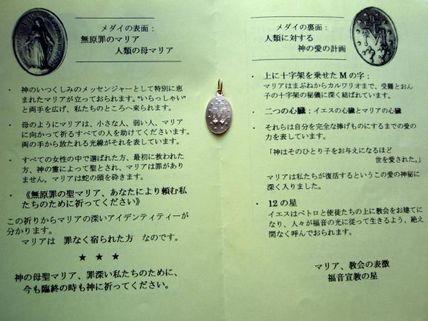 メダイの表面：
無原罪のマリア
人類の母マリア
・ 神のいつくしみのメッセンジャーとして特別に恵
まれたマリアが立っておられます。“いらっしゃい”
と両手を広げ、私たちのところへ来られます。
・ 母のようにマリアは、小さな人、弱い人、マリア
に向かって祈るすべての人を助けてください。
両の手から放たれる光線がそれを表しています。
・ すべての女性の中で選ばれた方、最初に救われた
方、神の霊によって聖とされ、マリアは罪があり
ません。マリアは蛇の頭を砕きます。
・ 《無原罪の聖マリア、あなたにより頼む私
たちのために祈ってください》
この祈りからマリアの深いアイデンティティーが
分かります。
マリアは 罪なく宿られた方 なのです。
★ ★ ★
神の母聖マリア、罪深い私たちのために、
今も臨終の時も神に祈ってください。
メダイの裏面：
人類に対する
神の愛の計画
・ 上に十字架を乗せた M の字：
マリアはまぶねからカルワリオまで、受難とおん
子の十字架の秘儀に深く結ばれています。
・ 二つの心臓：イエスの心臓とマリアの心臓
・ それらは自分を完全な捧げものにするまでの愛の
力を表しています。
「神はそのひとり子をお与えになるほど
世を愛された。」
マリアは私たちが復活するというこの愛の神秘に
深く入りました。
・ 12 の星
イエスはペトロと使徒たちの上に教会をお建てに
なり、人々が福音の光に従って生きるよう、絶え
間なく呼んでおられます。
マリア、教会の表徴
福音宣教の星